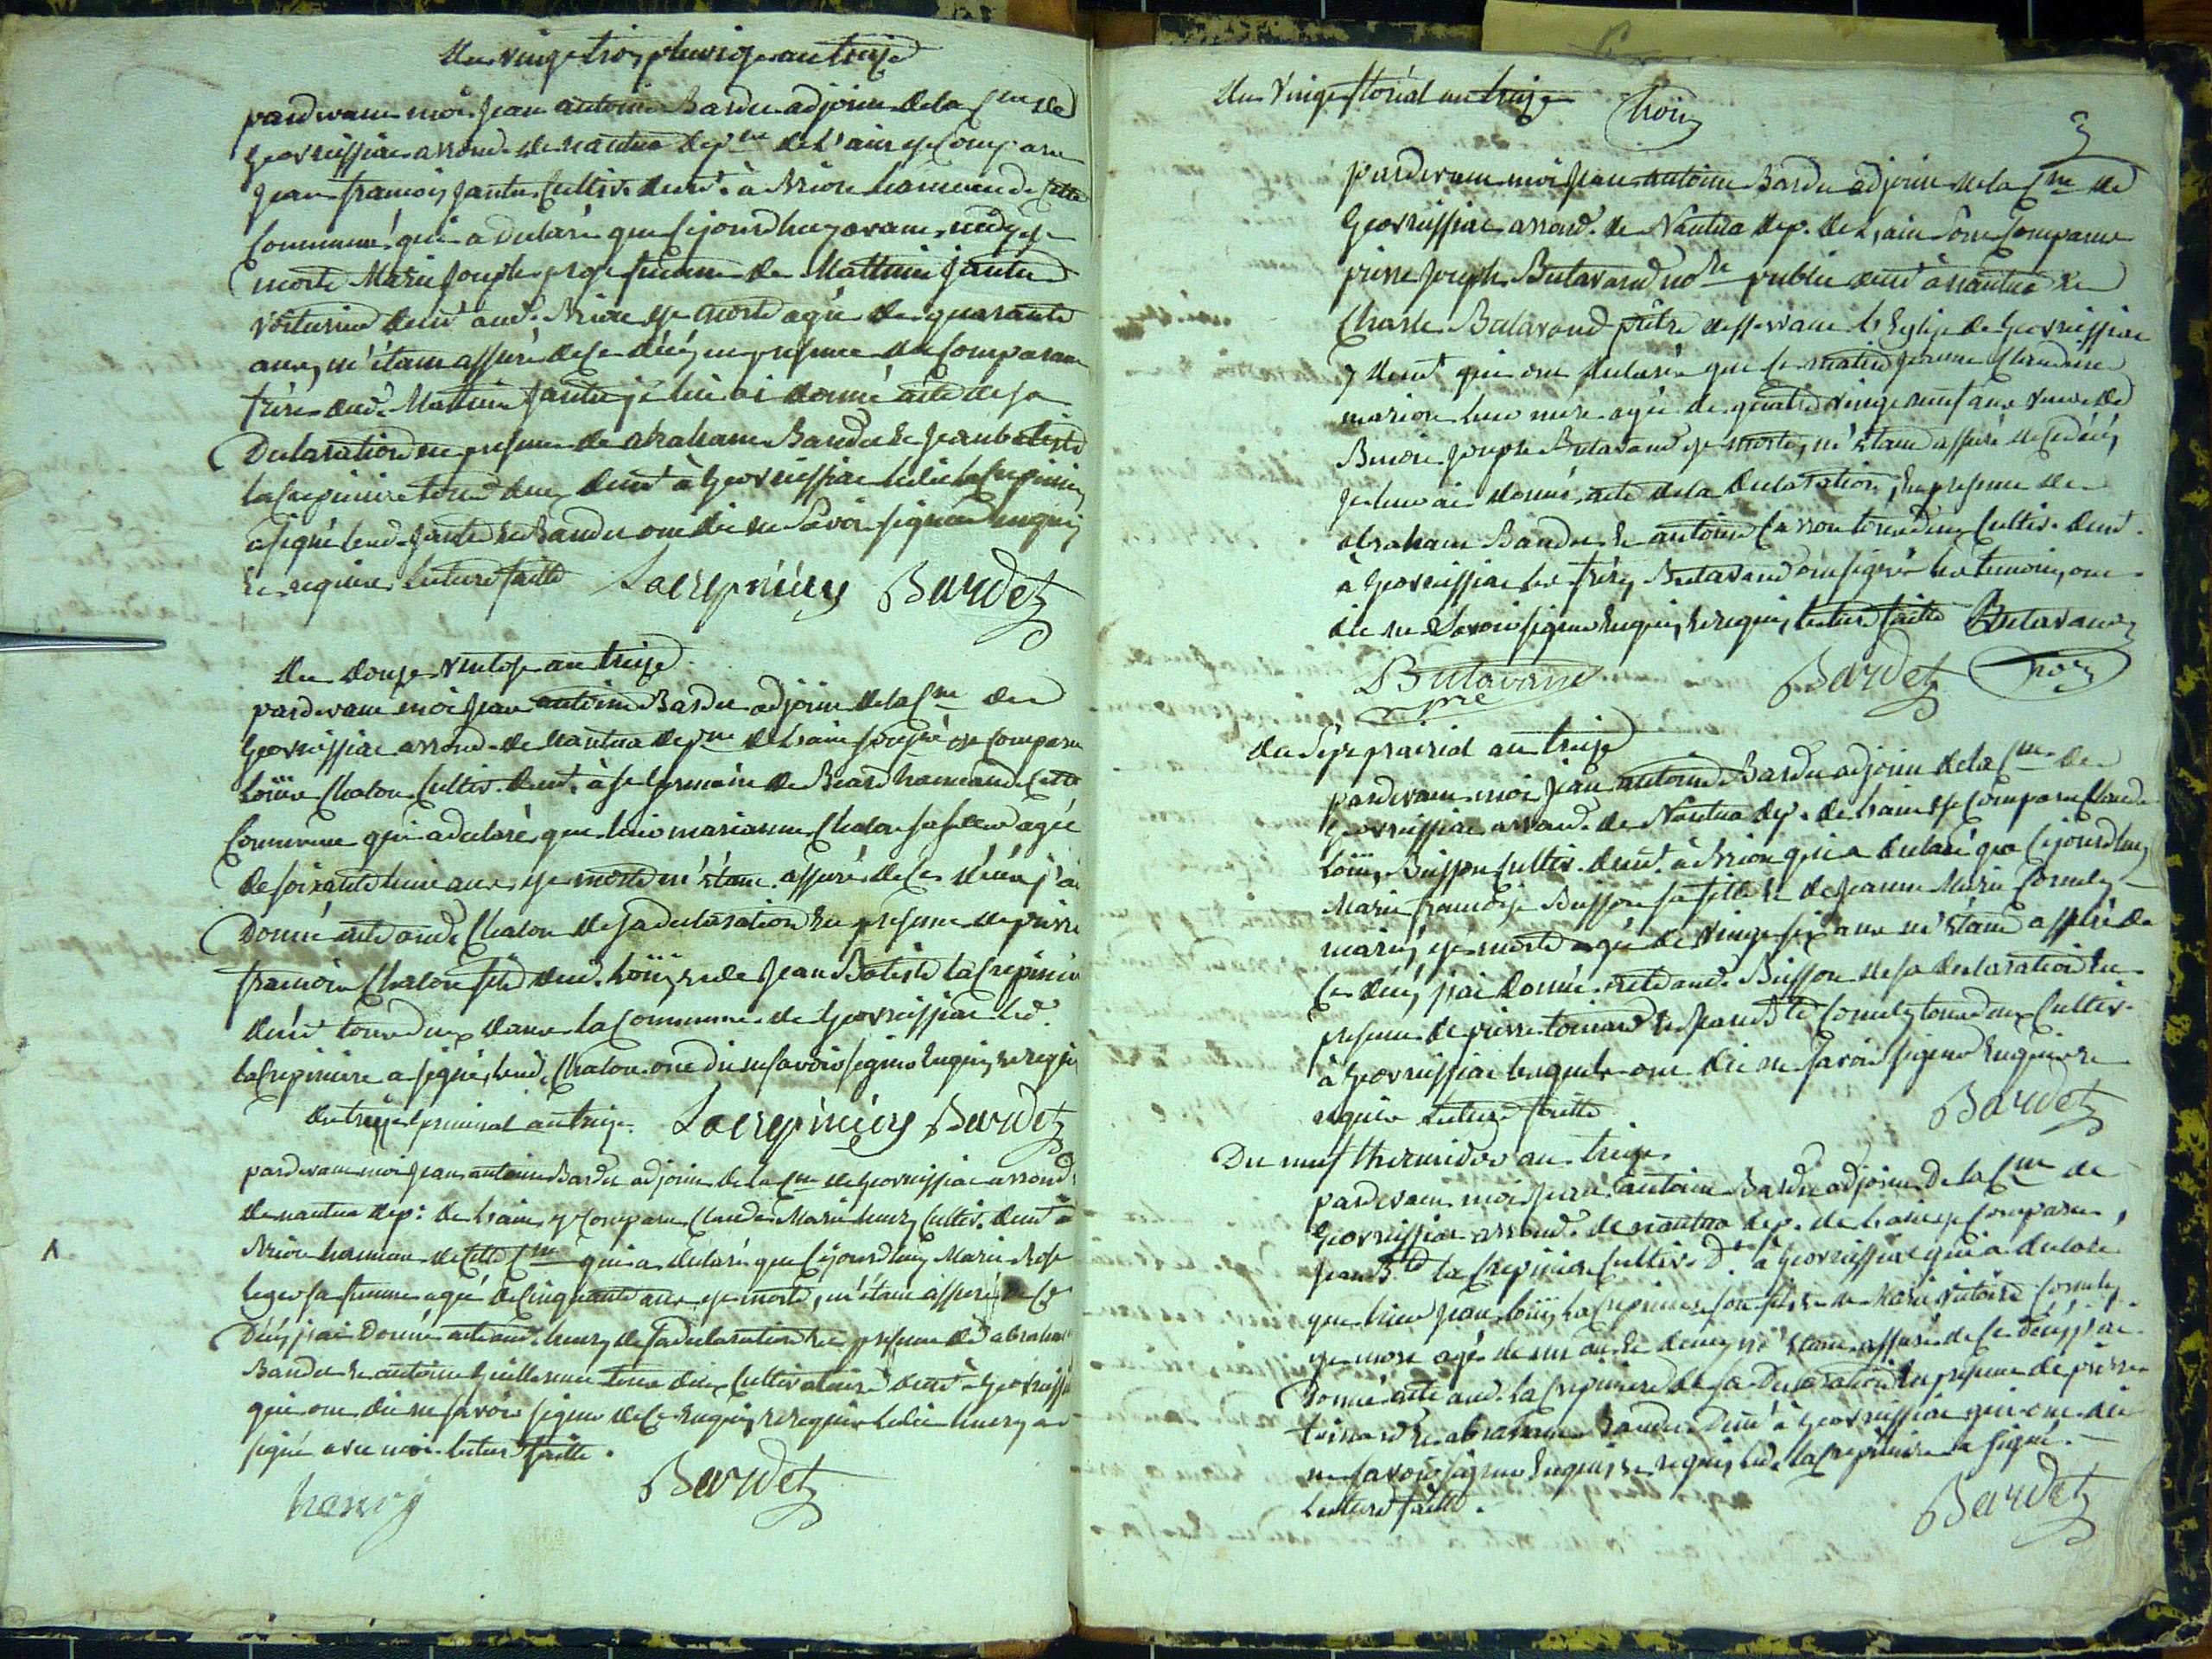 Du vingt trois pluviose an treize
pardevant moi Jean antoine Bardet adjoint de la Cne de
Geovreissiac arrond. de nantua depne de L'ain est Comparu
Jean francois Jantet Cultiv. deme. à Brion hameau de Cette
Commune qui a declaré que Cejourdhuy avant midy est
morte Marie Joseph femme de Mathieu Jantet
voiturier deme aud. Brion est morte agée de quarante
ans, m'étant assuré de Ce décés en presence du Comparant
frère dud. Mathieu Jantet je lui ai donné acte de sa
Declaration en presence de abraham Bandet et Jean batiste
la Crepiniere tous deux deme à Geovreissiac ledit la Crepiniere
a signé led. Jantet et Bandet ont dit ne Savoir signer enquis
et requis. Lecture faitte Lacrepiniere Bardet
Du douze Ventose an treize
pardevant moi Jean antoine Bardet adjoint de la Cne de
Geovreissiac arrond. de Nantua depne de Lain est comparu
Louis Chaton Cultiv. deme. à St Germain de Beard hameau de Cette
Commune qui a declaré que hier marianne Chaton sa sœur agée
de soixante huit ans, est morte m'étant assuré de Ce décés j'ai
Donné acte aud. Chaton de sa declaration En presence de pierre
francois Chaton fils dud. Louis et de Jean Batiste la Crepiniere
deme tous deux dans la Commune de Geovreissiac led.
la Crepiniere a signé, lesd. Chaton ont dit ne savoir signer Enquis et requis
du treize Germinal an treize. Lacrepiniere Bardet
pardevant moi Jean antoine Bardet adjoint de la Cne de Geovreissiac arrond.
de nantua dep. de Lain, est Comparu Claude Marie henry Cultiv. deme à
Brion hameau de Cette Cne qui a declaré que Cejourdhuy Marie Rose
leger sa femme agée de Cinquante ans est morte, m'étant assuré de Ce
Décés j'ai Donné acte aud. henry de sa declaration En presence de abraham
Bandet et antoine Guillermet tous deux Cultivateurs deme à Geovreissiac
qui ont dit ne savoir signer de Ce Enquis et requis Ledit henry a
signé avec moi lecture faitte.
henry Bardet
Du Vingt floréal an treize trois
3
pardevant moi Jean antoine Bardet adjoint de la Cne de
Geovreissiac arrond. de Nantua dep. de L'ain Sont Comparus
pierre Joseph Butavand nore public deme à nantua et
Charle Butavand prêtre desservant l'Eglise de Geovreissiac
y deme qui ont declaré que Ce matin Jeanne Claudine
marion leur mere agée de quatre vingt neuf ans veuve de
Benoit Joseph Butavand est morte, m'étant assuré de Ce décés
je leur ai donné acte de la declaration, En presence de
abraham Bandet et antoine Carron tous deux Cultiv. deme.
à Geovreissiac les frères Butavand ont signé les temoins ont
dit ne Savoir signer Enquis et requis, lecture faitte Butavand
Butavand Bardet trois
pre
du Sept prairial an treize
pardevant moi Jean antoine Bardet adjoint de la Cne de
Geovreissiac arrond. de Nantua dep. de Lain est Comparu Claude
Louis Buisson Cultiv. deme. à Brion qui a declaré que Cejourdhuy
Marie francoise Buisson sa fille et de Jeanne Marie Comely
mariés, est morte agée de vingt six ans m'étant assuré de
Ce décés, j'ai Donné acte aud. Buisson de sa declaration En
presence de pierre toinard et Jean Bte Comely tous deux Cultiv.
à Geovreissiac lesquels ont dit ne Savoir signer Enquis et
requis Lecture faitte Bardet
Du neuf thermidor an treize
pardevant moi Jean antoine Bardet adjoint De la Cne de
Geovreissiac arrond. de nantua dep. de Lain est Comparu,
Jean Bte la Crepiniere Cultiv. Dt à Geovreissiac qui a declaré
que hier Jean Louis la Crepiniere son fils et de Marie Victoire Comely
est mort agé de un an et demy m'étant assuré de Ce décés j'ai
Donné acte aud. la Crepiniere de sa Declaration En presence de pierre
toinard et abraham Bandet Deme à Geovreissiac qui ont dit
ne savoir signer Enquis et requis, led. la Crepiniere a signé.
Lecture faitte. Bardet